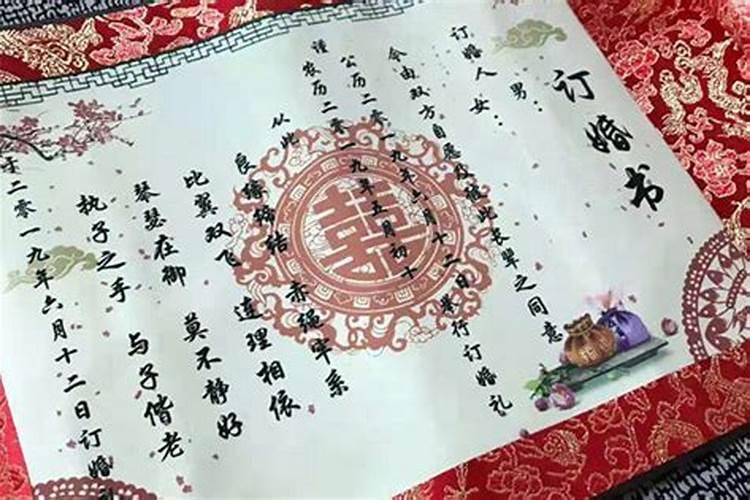 订婚书
男：
订婚人 女：
今由双方自愿及彼此长辈之同意
谨 公历二零一九年六月十二日举行订婚礼
农历二零一九年五月初十
从此 赤绳牢系
良缘缔结 连理相依
比翼双飞 莫不静好
琴瑟在御 与子偕老
执子之手
于二零一九年六月十二日订婚